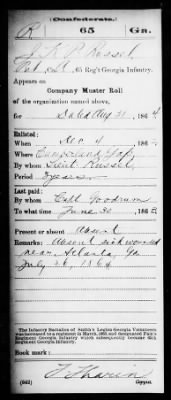 Confederate.
R 65 Ga.
J. R. P. Russel
Pvt, Co. A, 65 Reg't Georgia Infantry.
Appears on
Company Muster Roll
of the organization named above,
for Dated Aug 31, 1864
Enlisted:
When Dec 4, 186
Where Cumberland Gap
By whom Lieut Russel
Period 3 years
Last paid:
By whom Capt Goodrum
To what time June 30, 186
Present or absent Absent
Remarks: Absent sick wounded
near Atlanta, Ga
July 26, 1864
The Infantry Battalion of Smith's Legion Georgia Volunteers
was increased to a regiment in March, 1863, and designated
Regiment Georgia Infantry which subsequently became 65th
Regiment Georgia Infantry.
Book mark:
(642) Copyist.